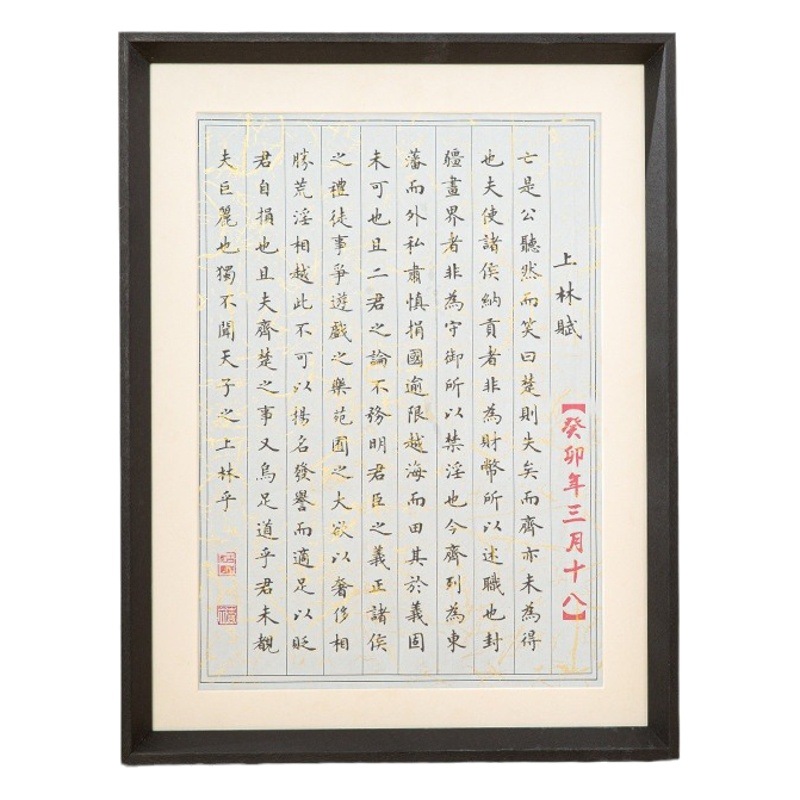 上林賦
【癸卯年三月十八】
亡是公聽然而笑曰楚則失矣而齊亦未為得
也夫使諸侯納貢者非為財幣所以述職也封
疆畫界者非為守御所以禁淫也今齊列為東
藩而外私肅慎捐國逾限越海而田其於義固
未可也且二君之論不務明君臣之義正諸侯
之禮徒事爭遊戲之樂苑囿之大欲以奢侈相
勝荒淫相越此不可以揚名發譽而適足以貶
君自損也且夫齊楚之事又烏足道乎君未覩
夫巨麗也獨不聞天子之上林乎